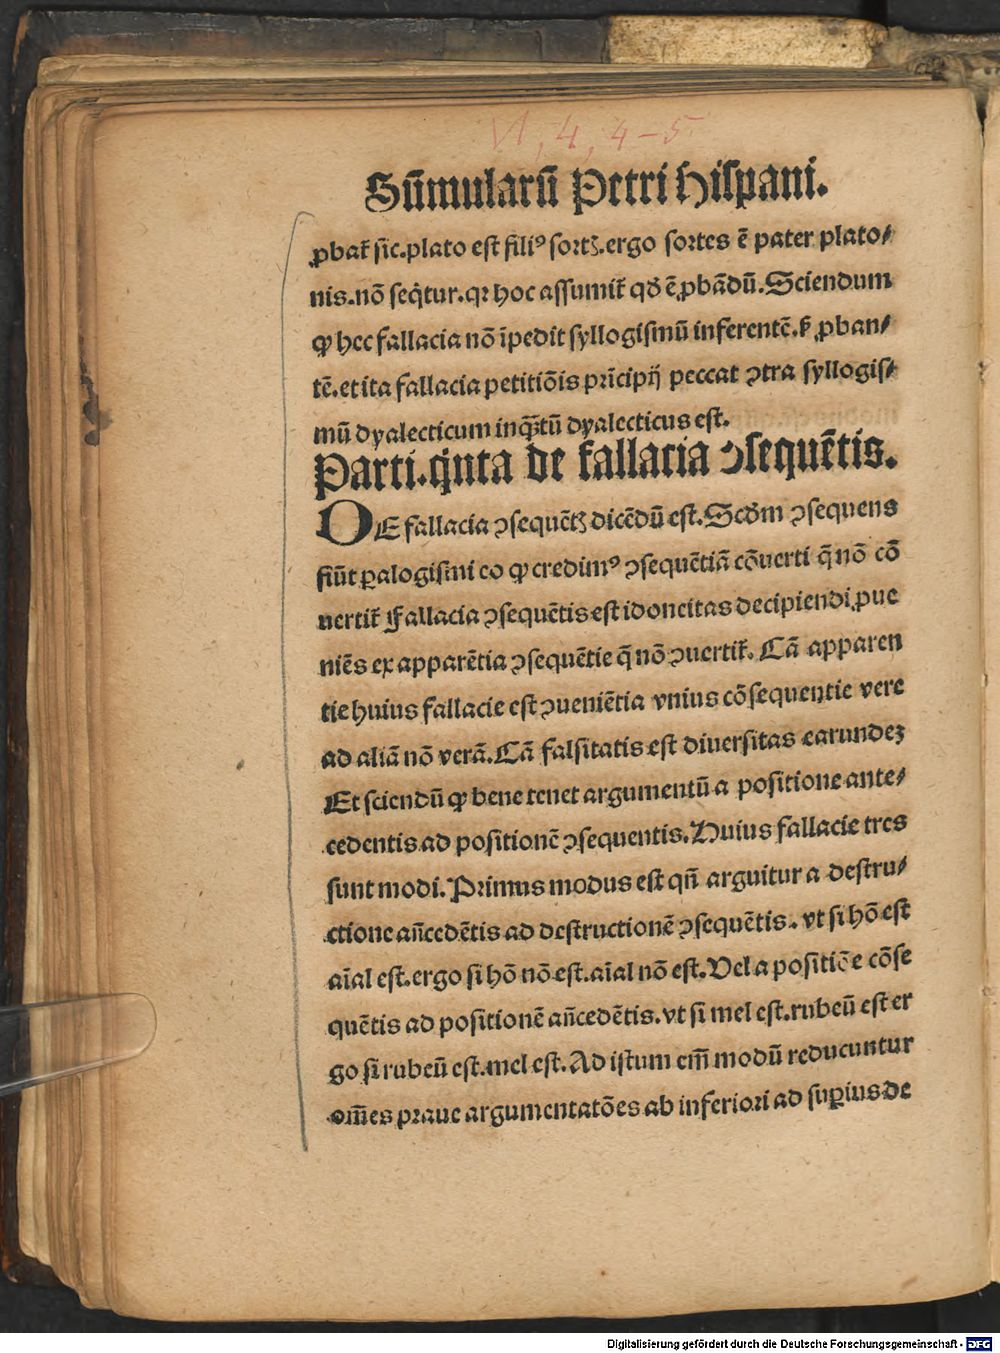 VI, 4, 4-5
Sūmularū Petri Hiſpani.
ꝓbat᷑ ſic. plato eſt filiꝰ ſortꝫ. ergo ſortes ē pater plato⸗
nis. nō ſeqͥtur. qꝛ hoc aſſumit᷑ qđ ē ꝓbādū. Sciendum
ꝙ hec fallacia nō īpedit ſyllogiſmū inferentē. ſꝫ ꝓban⸗
tē. et ita fallacia petitiōis prīcipij peccat ↄtra ſyllogiſ⸗
mū dyalecticum inqͣꝫtū dyalecticus eſt.
Parti. qͥnta de fallacia ↄſequētis.
DE fallacia ↄſequētꝫ dicēdū eſt. Scđm ↄſequens
fiūt ꝑalogiſmi eo ꝙ credimꝰ ↄſequētiā cōuerti q̄ nō cō
uertit᷑ Fallacia ↄſequētis eſt idoneitas decipiendi ꝓue
niēs ex apparētia ↄſequētie q̄ nō ↄuertit᷑. Cā apparen
tie huius fallacie eſt ↄueniētia vnius cōſequentie vere
ad aliā nō verā. Cā falſitatis eſt diuerſitas earundeꝫ
Et ſciendū ꝙ bene tenet argumentū a poſitione ante⸗
cedentis ad poſitionē ↄſequentis. Huius fallacie tres
ſunt modi. Primus modus eſt qn̄ arguitur a deſtru⸗
ctione an̄cedētis ad deſtructionē ↄſequētis. vt ſi hō eſt
aīal eſt. ergo ſi hō nō eſt. aīal nō eſt. Uel a poſitiōe cōſe
quētis ad poſitionē an̄cedētis. vt ſi mel eſt. rubeū eſt er
go ſi rubeū eſt. mel eſt. Ad iſtum em̄ modū reducuntur
om̄es praue argumentatōes ab inferiori ad ſuꝑius de
Digitalisierung gefördert durch die Deutsche Forschungsgemeinschaft - DFG